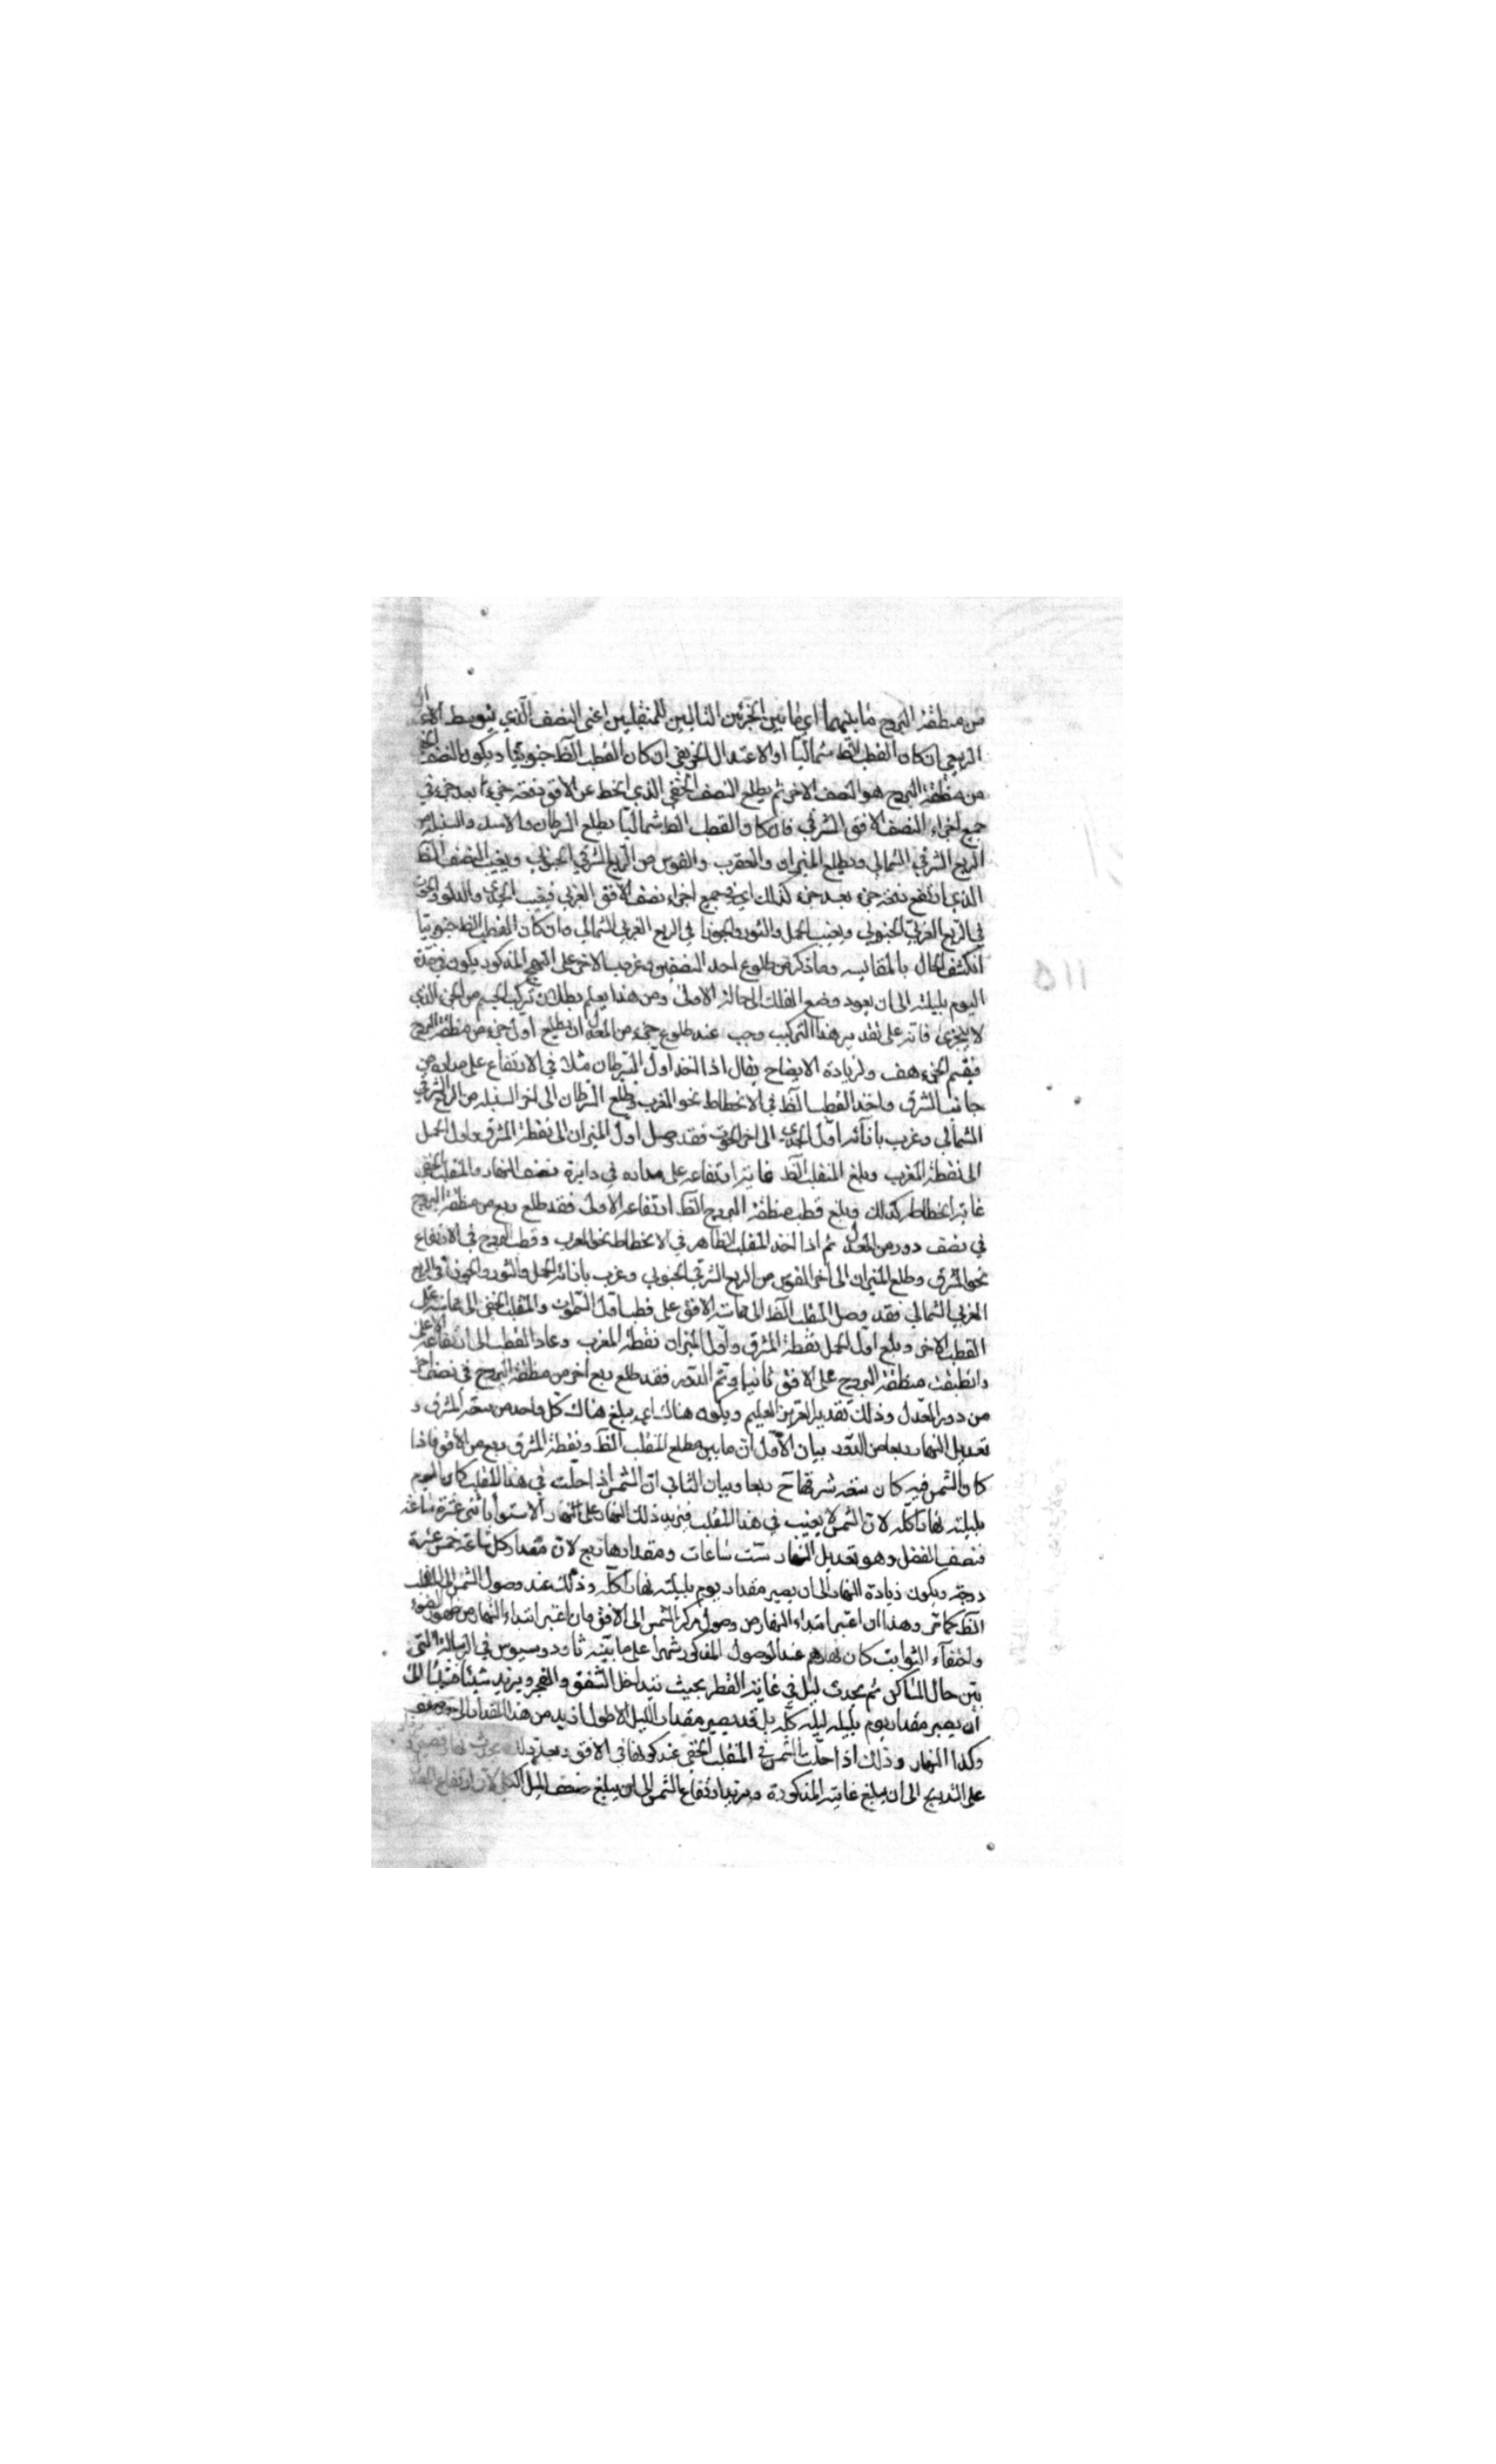 من منطقة البروج ما بينهما اي ما بين الجزئين التاليين للمنقلبين اعني النصف الذي يتوسط الاعتدال
الربيعي ان كان القطب الظ شماليا او الاعتدال الخريفي ان كان القطب الظ جنوبيا ويكون النصف الخفي
من منطقة البروج هو النصف الاخر ثم يطلع النصف الخفي الذي انحط عن الافق دفعة جزءا بعد جزء في
جميع اجزاء النصف الافق الشرقي فان كان القطب الظ شماليا يطلع السرطان والاسد والسنبلة من
الربع الشرقي الشمالي ويطلع الميزان والعقرب والقوس من الربع الشرقي الجنوبي ويغيب النصف الظ
الذي ارتفع دفعة جزء بعد جزء كذلك اي في جميع اجزاء نصف الافق الغربي فيغيب الجدي والدلو والحوت
في الربع الغربي الجنوبي ويغيب الحمل والثور والجوزا في الربع الغربي الشمالي وان كان القطب الظ جنوبيا
انكشف الحال بالمقايسه وما ذكر من طلوع احد النصفين وغروب الاخر على النهج المذكور يكون في مدة
اليوم بليلته الى ان يعود وضع الفلك الى حالة الاولى ومن هذا يعلم بطلان تركب الجسم من الجزء الذي
لا يتجزى فانه على تقدير هذا التركيب وجب عند طلوع جزء من المعدل ان يطلع اول جزء من منطقة البروج
فينقسم الجزء هف ولزيادة الايضاح يقال اذا اخذ اول السرطان مثلا في الارتفاع على مداره من
جانب الشرق واخذ القطب الظ في الانحطاط نحو المغرب وطلع السرطان الى اخر السنبله من الربع الشرقي
الشمالي وغرب بازائه اول الجدي الى اخر الحوت فقد وصل اول الميزان الى نقطة المشرق واول الحمل
الى نقطة المغرب وبلغ المنقلب الظ غاية ارتفاعه على مداره في دايرة نصف النهار والمنقلب الخفي
غاية انحطاطه كذلك وبلغ قطب منطقة البروج الظ ارتفاعه الاول فقد طلع ربع من منطقة البروج
في نصف دور من المعدل ثم اذا اخذ المنقلب الظاهر في الانحطاط نحو المغرب وقطب البروج في الارتفاع
نحو المشرق وطلع الميزان الى اخر القوس من الربع الشرقي الجنوبي وغرب بازائه الحمل والثور والجوزا في الربع
الغربي الشمالي فقد وصل المنقلب الظ الى مماسة الافق على قطب اول السموات والمنقلب الخفي الى مماسته على
القطب الاخر وبلغ اول الحمل نقطة المشرق واول الميزان نقطة المغرب وعاد القطب الى ارتفاعه الاعلى
وانطبقت منطقة البروج على الافق ثانيا وتم الدور فقد طلع ربع اخر من منطقة البروج في نصف اخر
من دور المعدل وذلك تقدير العزيز العليم ويكون هناك اي يبلغ هناك كل واحد من سعة المشرق و
تعديل النهار ربعا من الدور بيان الاول ان ما بين مطلع المنقلب الظ ونقطة المشرق ربع من الافق فاذا
كان الشمس فيه كان سعة شرقها ح ربعا وبيان الثاني ان الشمس اذا حلت في هذا المنقلب كان اليوم
بليلته نهارا كله لان الشمس لا يغيب في هذا المنقلب فيزيد ذلك النهار على النهار الاستواء باثنى عشرة ساعة
فنصف الفضل وهو تعديل النهار ست ساعات ومقدارها ربع لان مقدار كل ساعة خمس عشرة
درجة ويكون زيادة النهار الى ان يصير مقدار يوم بليلته نهارا كله وذلك عند وصول الشمس الى المنقلب
الظ كما مر وهذا ان اعتبر ابتداء النهار من وصول مركز الشمس الى الافق وان اعتبر ابتداء النهار من ظهور الضوء
واختفاء الثوابت كان نهارهم عند الوصول المذكور شهرا على ما بينه ثاودوسيوس في الرسالة التي
بين حال المساكن ثم يحدث ليل في غاية القصر بحيث يتداخل الشفق والفجر ويزيد شيئا فشيئا الى
ان يصير مقدار يوم بليله ليله كله بل قد يصير مقدار الليل الاطول ازيد من هذا المقدار
وكذا النهار وذلك اذا حلت الشمس في المنقلب الخفي عند كونها في الافق
على التدريج الى ان يبلغ غايته المذكورة ويزيد ارتفاع الشمس الى ان يبلغ ضعف الميل الكلي لان ارتفاع
١١٥